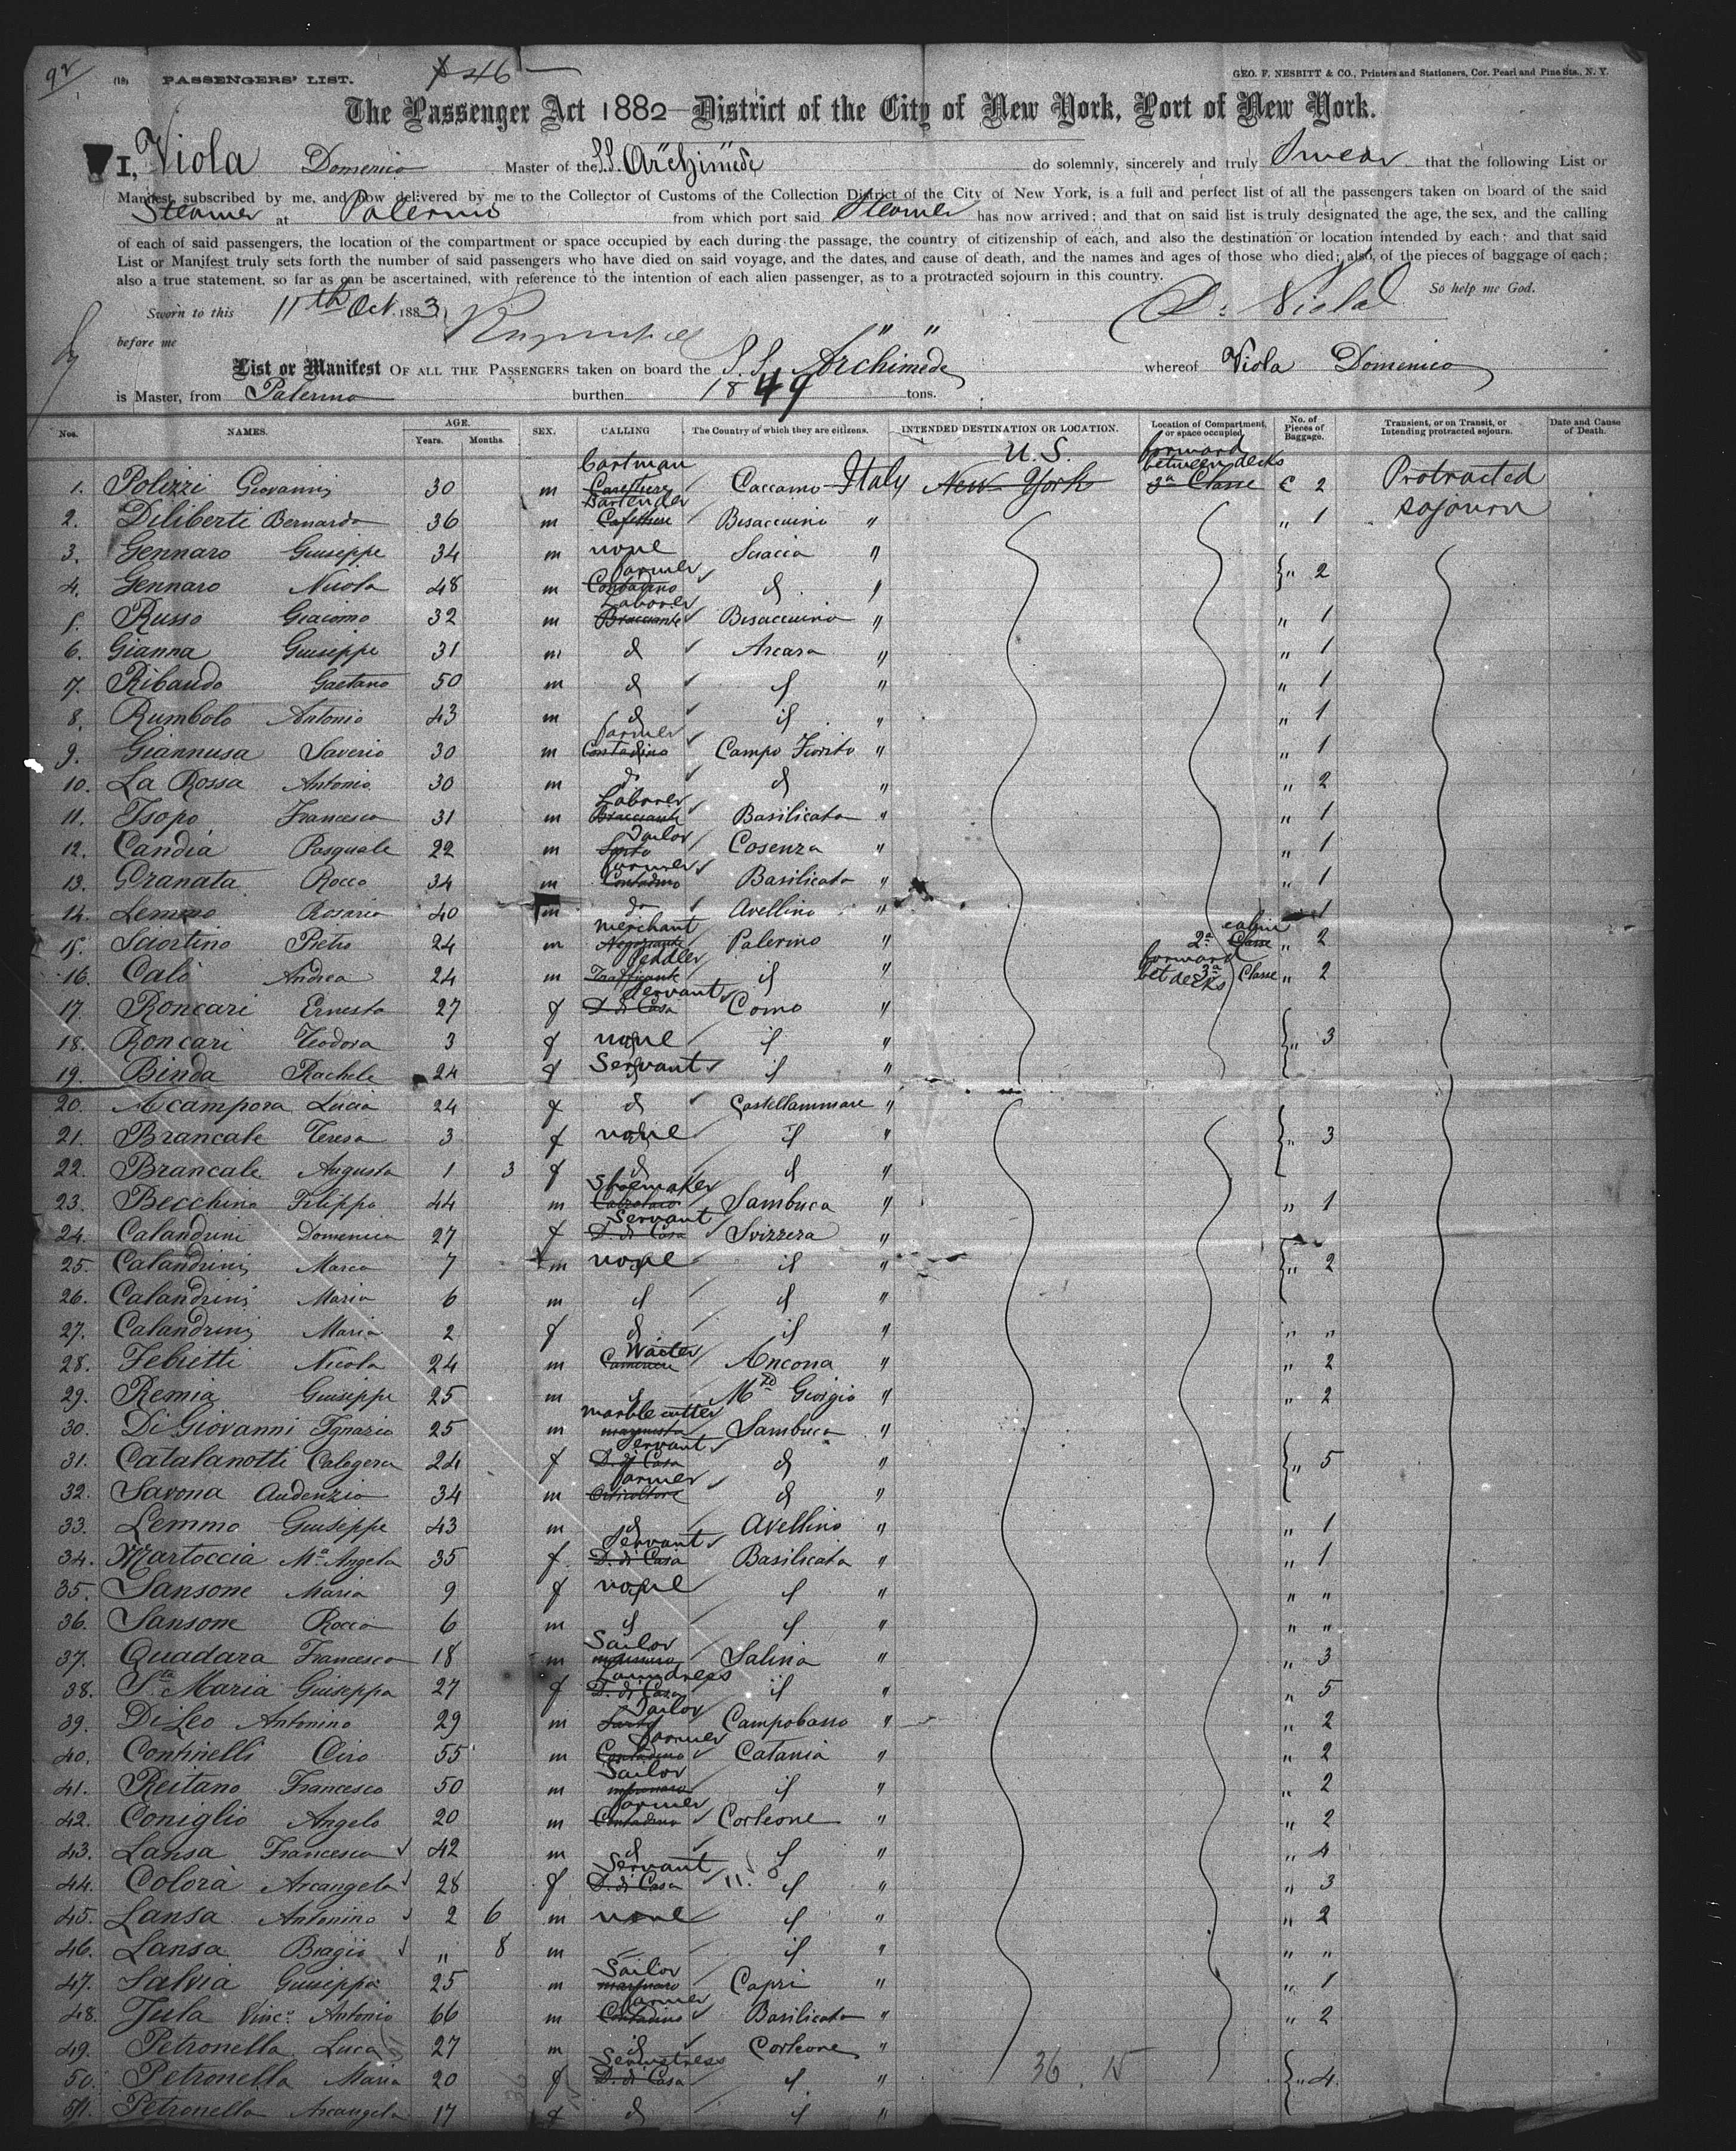 92
(18) PASSENGERS' LIST. $46
GEO. F. NESBITT & CO., Printers and Stationers, Cor. Pearl and Pine Sts., N. Y.
The Passenger Act 1882—District of the City of New York, Port of New York.
I, Viola Domenico Master of the S.S. Archimede do solemnly, sincerely and truly Swear that the following List or
Manifest, subscribed by me, and now delivered by me to the Collector of Customs of the Collection District of the City of New York, is a full and perfect list of all the passengers taken on board of the said
Steamer at Palermo from which port said Steamer has now arrived; and that on said list is truly designated the age, the sex, and the calling
of each of said passengers, the location of the compartment or space occupied by each during the passage, the country of citizenship of each, and also the destination or location intended by each; and that said
List or Manifest truly sets forth the number of said passengers who have died on said voyage, and the dates, and cause of death, and the names and ages of those who died; also, of the pieces of baggage of each;
also a true statement, so far as can be ascertained, with reference to the intention of each alien passenger, as to a protracted sojourn in this country.
So help me God.
Sworn to this 11th Oct. 1883 D. Viola
before me
List or Manifest OF ALL THE PASSENGERS taken on board the S.S. Archimede whereof Viola Domenico
is Master, from Palermo burthen 1849 tons.
Nos. NAMES. AGE. Years. Months. SEX. CALLING The Country of which they are citizens. INTENDED DESTINATION OR LOCATION. Location of Compartment, or space occupied. No. of Pieces of Baggage. Transient, or on Transit, or Intending protracted sojourn. Date and Cause of Death.
Cartman U.S. forward between decks
1. Polizzi Giovanni 30 m Caccamo Italy New York 3a Classe C 2 Protracted sojourn
Bartender
2. Diliberti Bernardo 36 m Caffettiere Bisaccuino " " 1
3. Gennaro Giuseppe 34 m none Sciacca "
farmer
4. Gennaro Nicola 48 m Contadino d " " 2
Laborer
5. Russo Giacomo 32 m Bracciante Bisaccuino " " 1
6. Gianna Giuseppe 31 m d Arcara " " 1
7. Ribaudo Gaetano 50 m d if " " 1
8. Rumbolo Antonio 43 m d if " " 1
farmer
9. Giannusa Saverio 30 m Contadino Campo Fiorito " " 1
10. La Rossa Antonio 30 m do d " " 2
Laborer
11. Isopo Francesco 31 m Bracciante Basilicata " " 1
Tailor
12. Candia Pasquale 22 m Sarto Cosenza " " 1
farmer
13. Granata Rocco 34 m Contadino Basilicata " " 1
14. Lemmo Rosario 40 m do Avellino " 1
merchant cabin
15. Sciortino Pietro 24 m Negoziante Palermo " 2a Classe " 2
Peddler forward bet decks
16. Calò Andrea 24 m Trafficante if " 3a Classe " 2
Servant
17. Roncari Ernesta 27 f D. di Casa Como "
18. Roncari Teodora 3 f none if " " 3
19. Binda Rachele 24 f Servant if "
20. Acampora Lucia 24 f d Castellammare "
21. Brancale Teresa 3 f none if " " 3
22. Brancale Augusta 1 3 f d d "
Shoemaker
23. Becchino Filippo 44 m Calzolaio Sambuca " " 1
Servant
24. Calandrini Domenica 27 f D. di Casa Svizzera "
25. Calandrini Marco 7 m none if " " 2
26. Calandrini Maria 6 m if if "
27. Calandrini Maria 2 f d if " " "
Waiter
28. Febretti Nicola 24 m Cameriere Ancona " " 2
29. Remia Giuseppe 25 m if Mto Giorgio " " 2
marble cutter
30. Di Giovanni Ignazio 25 m Sambuca "
Servant
31. Catalanotti Calogera 24 f D. di Casa d " " 5
farmer
32. Savona Audenzio 34 m d "
33. Lemmo Giuseppe 43 m d Avellino " " 1
Servant
34. Martoccia Ma Angela 35 f D. di Casa Basilicata " " 1
35. Sansone Maria 9 f none if " " "
36. Sansone Rocco 6 m if if " " "
Sailor
37. Quadara Francesco 18 m marinaro Salina " " 3
Laundress
38. Sta Maria Giuseppa 27 f D. di Casa if " " 5
Tailor
39. Di Leo Antonino 29 m Sarto Campobasso " " 2
Farmer
40. Continelli Ciro 55 m Contadino Catania " " 2
Sailor
41. Reitano Francesco 50 m marinaro if " " 2
farmer
42. Coniglio Angelo 20 m Contadino Corleone " " 2
43. Lansa Francesco 42 m d if " " 4
Servant
44. Colora Arcangela 28 f D. di Casa if " " 3
45. Lansa Antonino 2 6 m none if " " 2
46. Lansa Biagio " 8 m if " " "
Sailor
47. Salvia Giuseppe 25 m marinaro Capri " " 1
farmer
48. Jula Vinco Antonio 66 m Contadino Basilicata " " 2
49. Petronella Luca 27 m d Corleone "
Seamstress
50. Petronella Maria 20 f D. di Casa if " 36 N " 4
51. Petronella Arcangela 17 f d if "